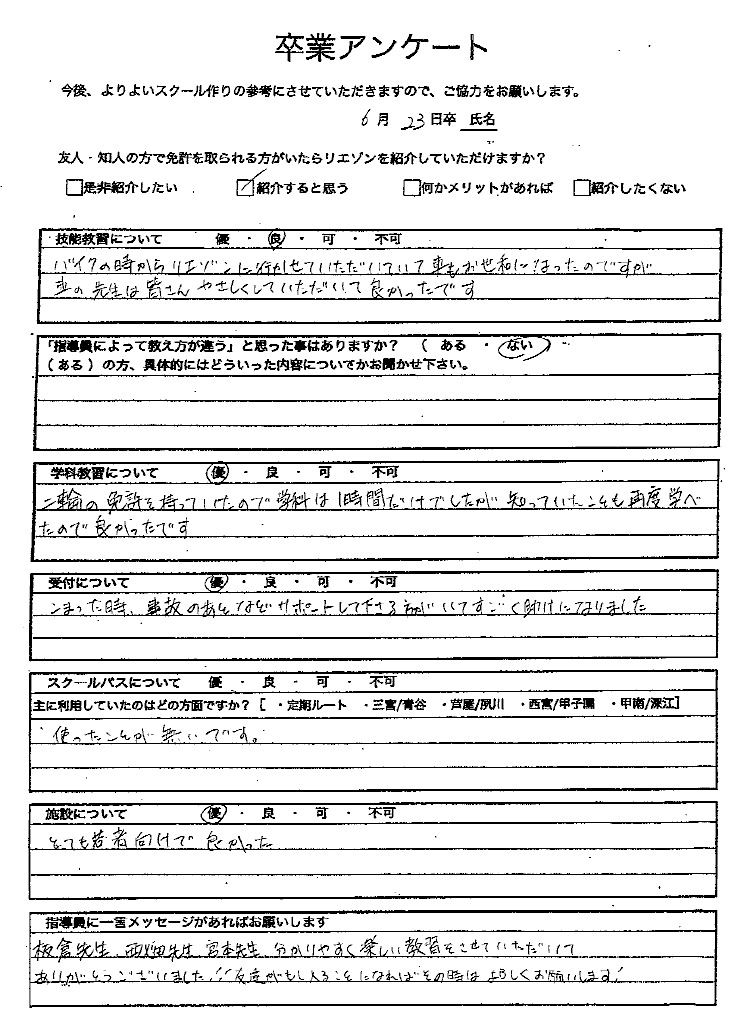 卒業アンケート
今後、よりよいスクール作りの参考にさせていただきますので、ご協力をお願いします。
6月 23日卒 氏名
友人・知人の方で免許を取られる方がいたらリエゾンを紹介していただけますか？
□是非紹介したい ☑紹介すると思う □何かメリットがあれば □紹介したくない
技能教習について 優 ・ 良 ・ 可 ・ 不可
バイクの時からリエゾンに行かせていただいていて車もお世和になったのですが
車の先生は皆さんやさしくしていただいて良かったです
「指導員によって教え方が違う」と思った事はありますか？ （ ある ・ ない ）
（ある）の方、具体的にはどういった内容についてかお聞かせ下さい。
学科教習について 優 ・ 良 ・ 可 ・ 不可
二輪の免許を持っていたので学科は1時間だけでしたが知っていたことも再度学べ
たので良かったです
受付について 優 ・ 良 ・ 可 ・ 不可
こまった時、事故のあとなどサポートして下さる方がいてすごく助けになりました
スクールバスについて 優 ・ 良 ・ 可 ・ 不可
主に利用していたのはどの方面ですか？［ ・定期ルート ・三宮/青谷 ・芦屋/夙川 ・西宮/甲子園 ・甲南/深江］
使ったことが無いです。
施設について 優 ・ 良 ・ 可 ・ 不可
とても若者向けで良かった
指導員に一言メッセージがあればお願いします
板倉先生、西畑先生、宮本先生、分かりやすく楽しい教習をさせていただいて
ありがとうございました!!友達がもし入ることになればその時はよろしくお願いします!